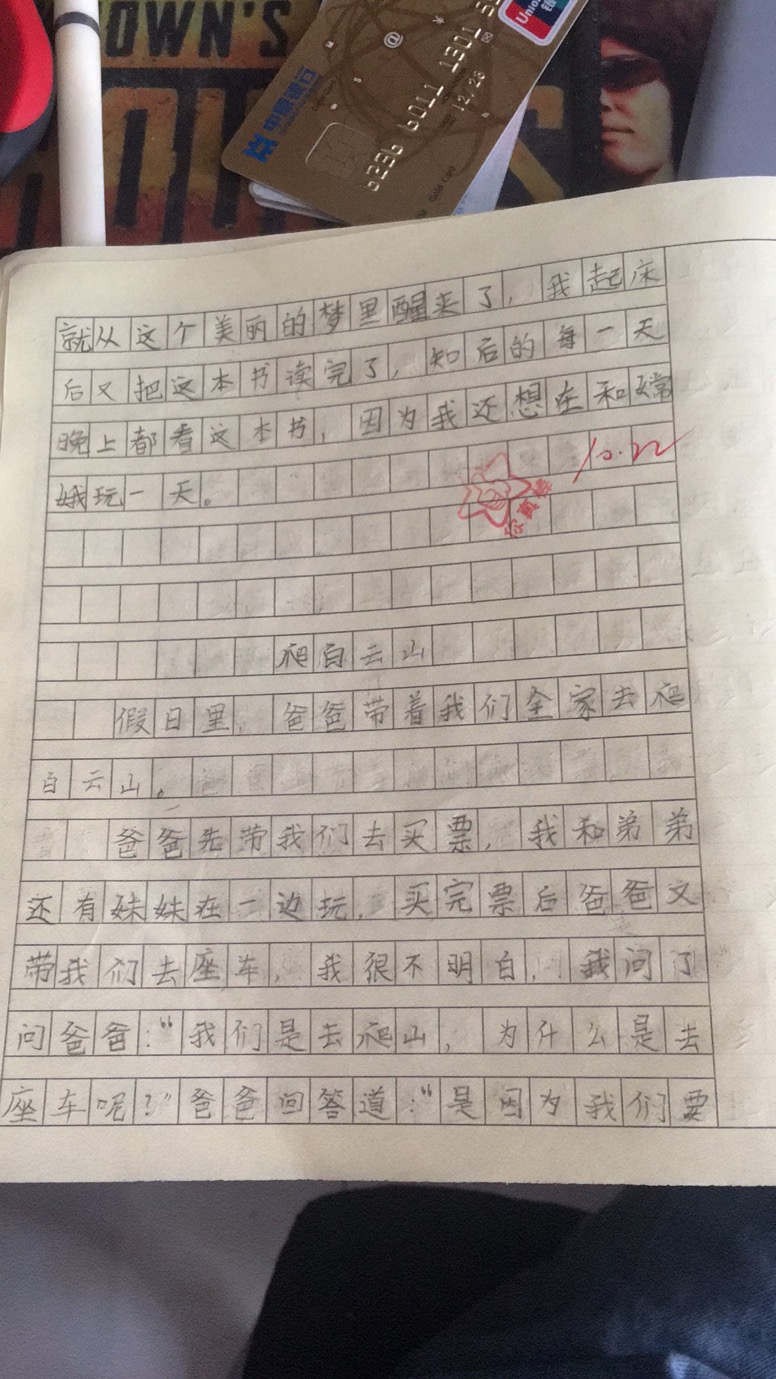 OWN'S
@
6236 6011 1301
12/26
Gold Card
Union
就从这个美丽的梦里醒来了，我起床
后又把这本书读完了，知后的每一天
晚上都看这本书，因为我还想在和嫦
娥玩一天。
10.22
你真棒
爬白云山
假日里，爸爸带着我们全家去爬
白云山。
爸爸先带我们去买票，我和弟弟
还有妹妹在一边玩，买完票后爸爸又
带我们去座车，我很不明白，我问了
问爸爸:“我们是去爬山，为什么是去
座车呢?”爸爸回答道:“是因为我们要